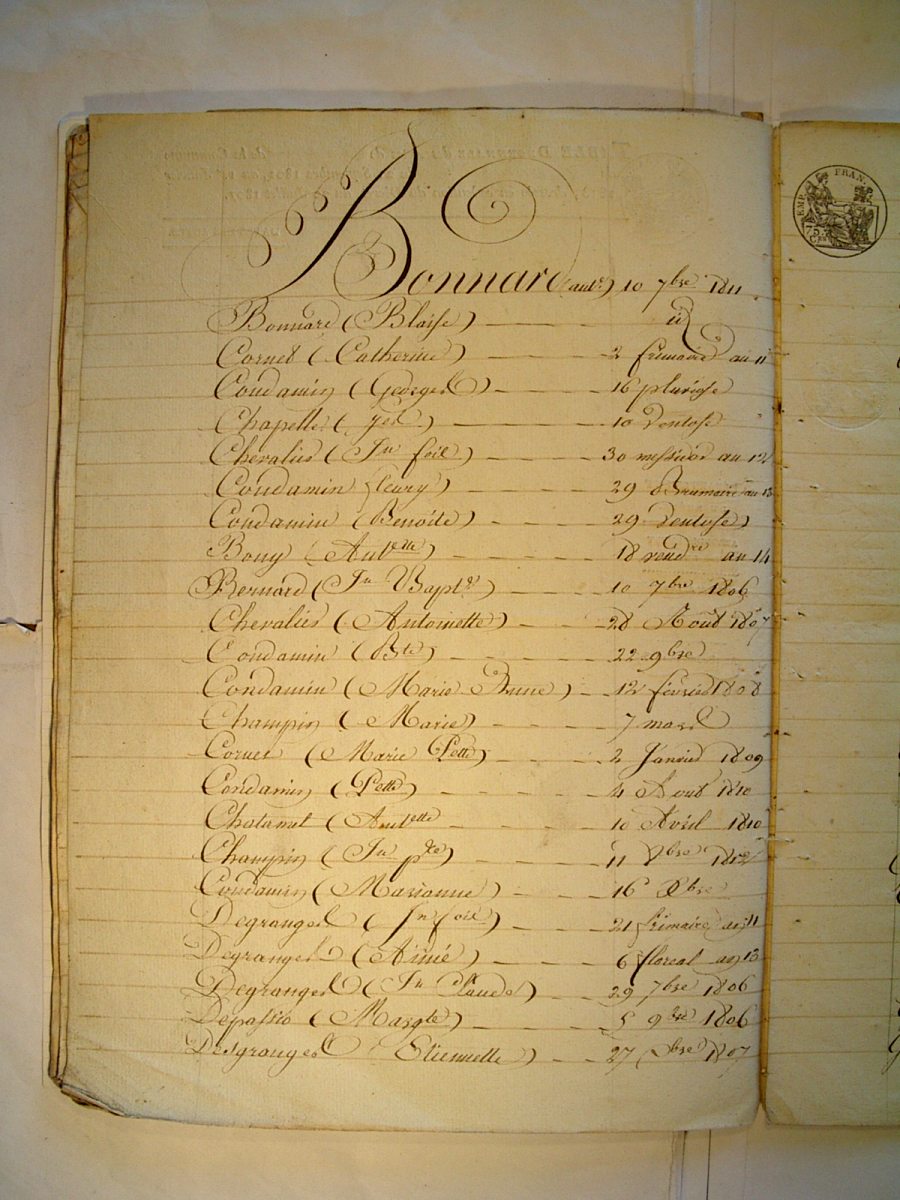 Bonnard (ant.e) 10 7bre 1811
Bonnard (Blaise) id
Cornet (Catherine) 2 frimaire an 11
Condamin (Georges) 16 pluviose
Chapelle 10 Ventose
Chevalier (Jn 30 messidor an 12
Condamin fleury) 29 Brumaire an 13
Condamin (Benoite) 29 Ventose
Bony (Antette) 18 vendre an 14
Bernard (Jn Bapte) 10 7bre 1806
Chevalier (Antoinette) 28 Aout 1807
Condamin (Bte) 22 9bre
Condamin (Marie Anne) 12 fevrier 1808
Champin (Marie) 7 mars
Cornet (Marie Pette) 2 Janvier 1809
Condamin (Pette) 4 Aout 1810
Chatanet (Antette 10 Avril 1810
Champin (Jn pre) 11 1812
Condamin (Marianne) 16 Xbre
Degranges (Jn 21 frimaire an 11
Degranges (Aimé) 6 floreal an 13
Degranges (Jn Claude) 29 7bre 1806
Depassio (Margte) 5 9bre 1806
Desgranges Etiennette) 27 Xbre 1807
EMP. FRAN.
75